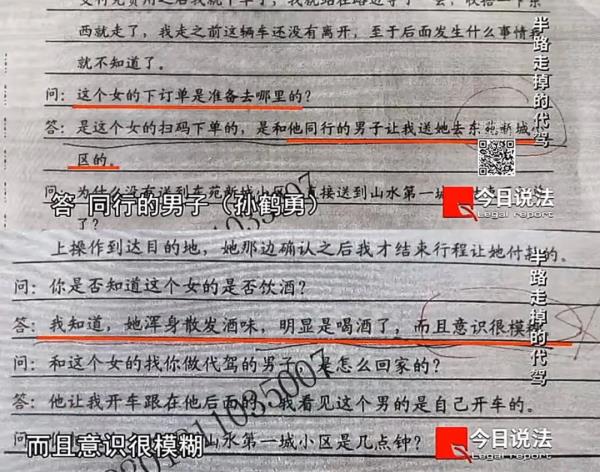 西就走了，我走之前这辆车还没有离开，至于后面发生什么事情我
就不知道了。
问：这个女的下订单是准备去哪里的？
答：是这个女的扫码下单的，是和他同行的男子让我送她去东苑新城小
区的。
问：为什么没有送到东苑新城小区，直接送到山水第一城
答 同行的男子（孙鹤勇）
半路走掉的代驾
今日说法
Legal report
上操作到达目的地，她那边确认之后我才结束行程让她付款的。
问：你是否知道这个女的是否饮酒？
答：我知道，她浑身散发酒味，明显是喝酒了，而且意识很模糊
问：和这个女的找你做代驾的男子，是怎么回家的？
答：他让我开车跟在他后面的，我看见这个男的是自己开车的。
山水第一城小区是几点钟？
而且意识很模糊
半路走掉的代驾
今日说法
Legal report